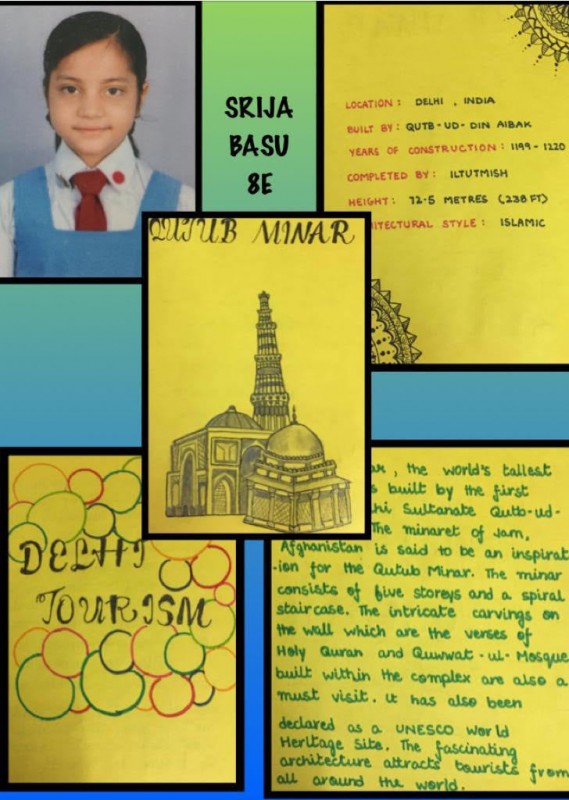 SRIJA
BASU
8E
LOCATION : DELHI , INDIA
BUILT BY : QUTB-UD-DIN AIBAK
YEARS OF CONSTRUCTION : 1199-1220
COMPLETED BY : ILTUTMISH
HEIGHT : 72.5 METRES (238 FT)
HITECTURAL STYLE : ISLAMIC
QUTUB MINAR
DELHI
TOURISM
, the world's tallest
built by the first
Sultanate Qutb-ud-
The minaret of Jam,
Afghanistan is said to be an inspirat
-ion for the Qutub Minar. The minar
consists of five storeys and a spiral
staircase. The intricate carvings on
the wall which are the verses of
Holy Quran and Quwwat-ul-Mosque
built within the complex are also a
must visit. It has also been
declared as a UNESCO World
Heritage Site. The fascinating
architecture attracts tourists from
all around the world.